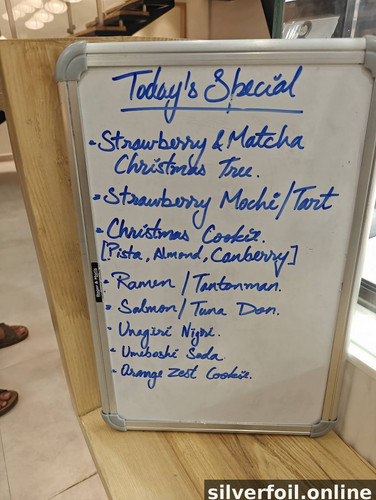 Today's Special
- Strawberry & Matcha
Christmas Tree.
- Strawberry Mochi/Tart
- Christmas Cookie.
[Pista, Almond, Canberry]
- Ramen / Tantanman.
- Salmon / Tuna Don.
- Unagiri Nigiri.
- Umeboshi Soda.
- Orange Zest Cookie.
silverfoil.online